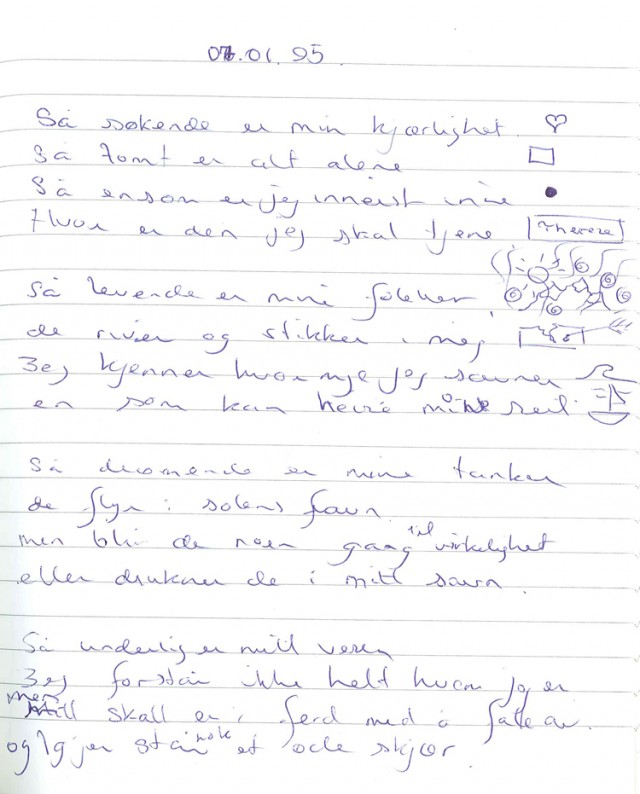 07.01.95
Så søkende er min kjærlighet
Så tomt er alt alene
Så ensom er jeg innerst inne
Hvor er den jeg skal tjene Therese
Så levende er mine følelser
de river og stikker i meg
Jeg kjenner hvor mye jeg savner
en som kan heise mine seil
Så drømende er mine tanker
de flyr i solens favn
men blir de noen gang til virkelighet
eller drukner de i mitt savn.
Så underlig er mitt vesen
Jeg forstår ikke helt hvem jeg er
men skall er i ferd med å falle av.
og igjen står nok et øde skjær.